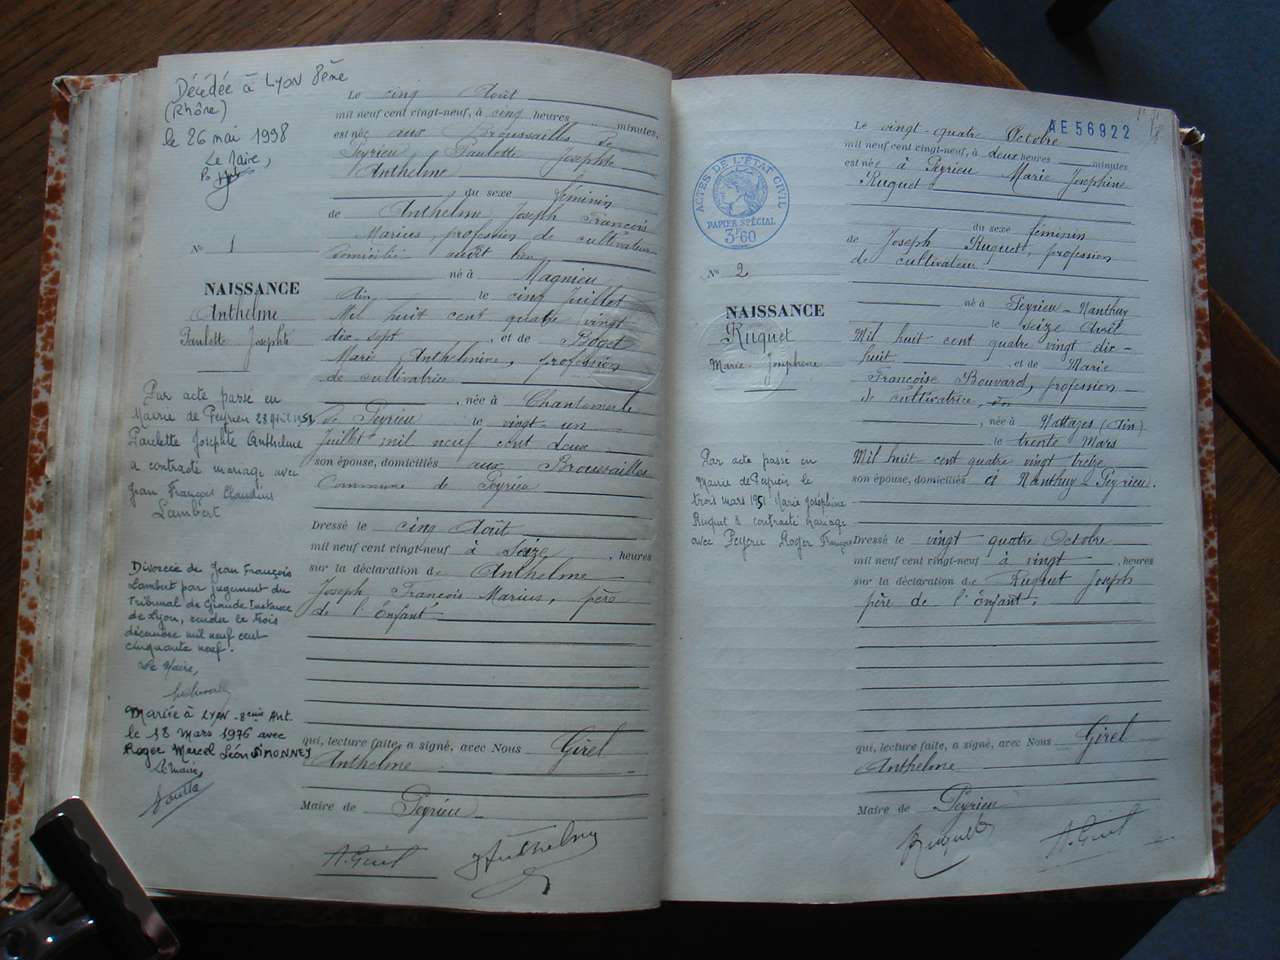 Décédée à LYON 8ème
(Rhône)
le 26 mai 1998
Le Maire,
N° 1
NAISSANCE
Anthelme
Paulette Josephte
Par acte passé en
Mairie de Peyrieu 28 Avril 1951
Paulette Josephte Anthelme
a contracté mariage avec
Jean François Claudius
Lambert
Divorcée de Jean François
Lambert par jugement du
Tribunal de Grande Instance
de Lyon, rendu le trois
décembre mil neuf cent
cinquante neuf.
Le Maire,
Mariée à LYON - 8ème Arr.
le 18 Mars 1976 avec
Roger Marcel Léon SIMONNEY
Le Maire
Le cinq Août
mil neuf cent vingt-neuf, à cinq heures minutes,
est née aux Broussailles de
Peyrieu Paulette Josephte
Anthelme
du sexe féminin
de Anthelme Joseph François
Marius, profession de cultivateur
domicilié audit lieu
né à Magnieu
Ain, le cinq Juillet
Mil huit cent quatre vingt
dix sept, et de Boget
Marie Anthelmine, profession
de cultivatrice
, née à Chantemerle
de Peyrieu le vingt un
Juillet mil neuf cent deux
son épouse, domiciliés aux Broussailles
Commune de Peyrieu
Dressé le cinq Août
mil neuf cent vingt-neuf à seize, heures
sur la déclaration de Anthelme
Joseph François Marius, père
de l'Enfant
qui, lecture faite, a signé, avec Nous Girel
Anthelme
Maire de Peyrieu
A. Girel
J Anthelme
AE 56922
ACTES DE L'ÉTAT CIVIL
PAPIER SPÉCIAL
3F60
N° 2
NAISSANCE
Ruguet
Marie-Josephine
Par acte passé en
Mairie de Peyrieu le
trois mars 1951 Marie Joséphine
Ruguet a contracté mariage
avec Peysou Roger François
Le vingt-quatre Octobre
mil neuf cent vingt-neuf, à deux heures minutes
est née à Peyrieu Marie Josephine
Ruguet
du sexe féminin
de Joseph Ruguet, profession
de cultivateur
né à Peyrieu-Nanthuy
le seize Avril
Mil huit cent quatre vingt dix-
huit, et de Marie
Francoise Bouvard, profession
de cultivatrice
, née à Nattages (Ain)
le trente Mars
Mil huit cent quatre vingt treize
son épouse, domiciliés à Nanthuy de Peyrieu.
Dressé le vingt quatre Octobre
mil neuf cent vingt-neuf à vingt, heures
sur la déclaration de Ruguet Joseph
père de l'Enfant.
qui, lecture faite, a signé, avec Nous Girel
Anthelme
Maire de Peyrieu
Ruguet
A. Girel